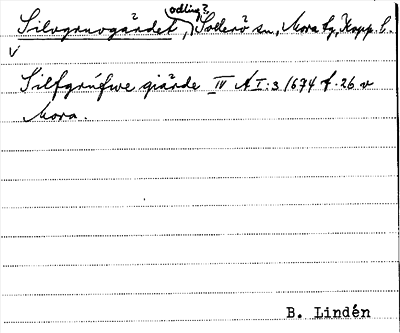 Silvgruvogärdet, (odling?) Sollerö sn, Mora tg, Kopp. l.
v
Silfgrufwe giärde IV A I:3 1674 f. 26 v
Mora.
B. Lindén